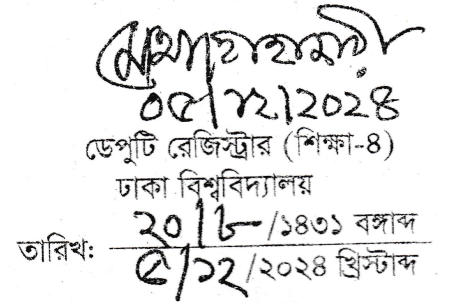 ০৫/১২/২০২৪
ডেপুটি রেজিস্ট্রার (শিক্ষা-৪)
ঢাকা বিশ্ববিদ্যালয়
তারিখ: ২০/৮/১৪৩১ বঙ্গাব্দ
৫/১২/২০২৪ খ্রিস্টাব্দ